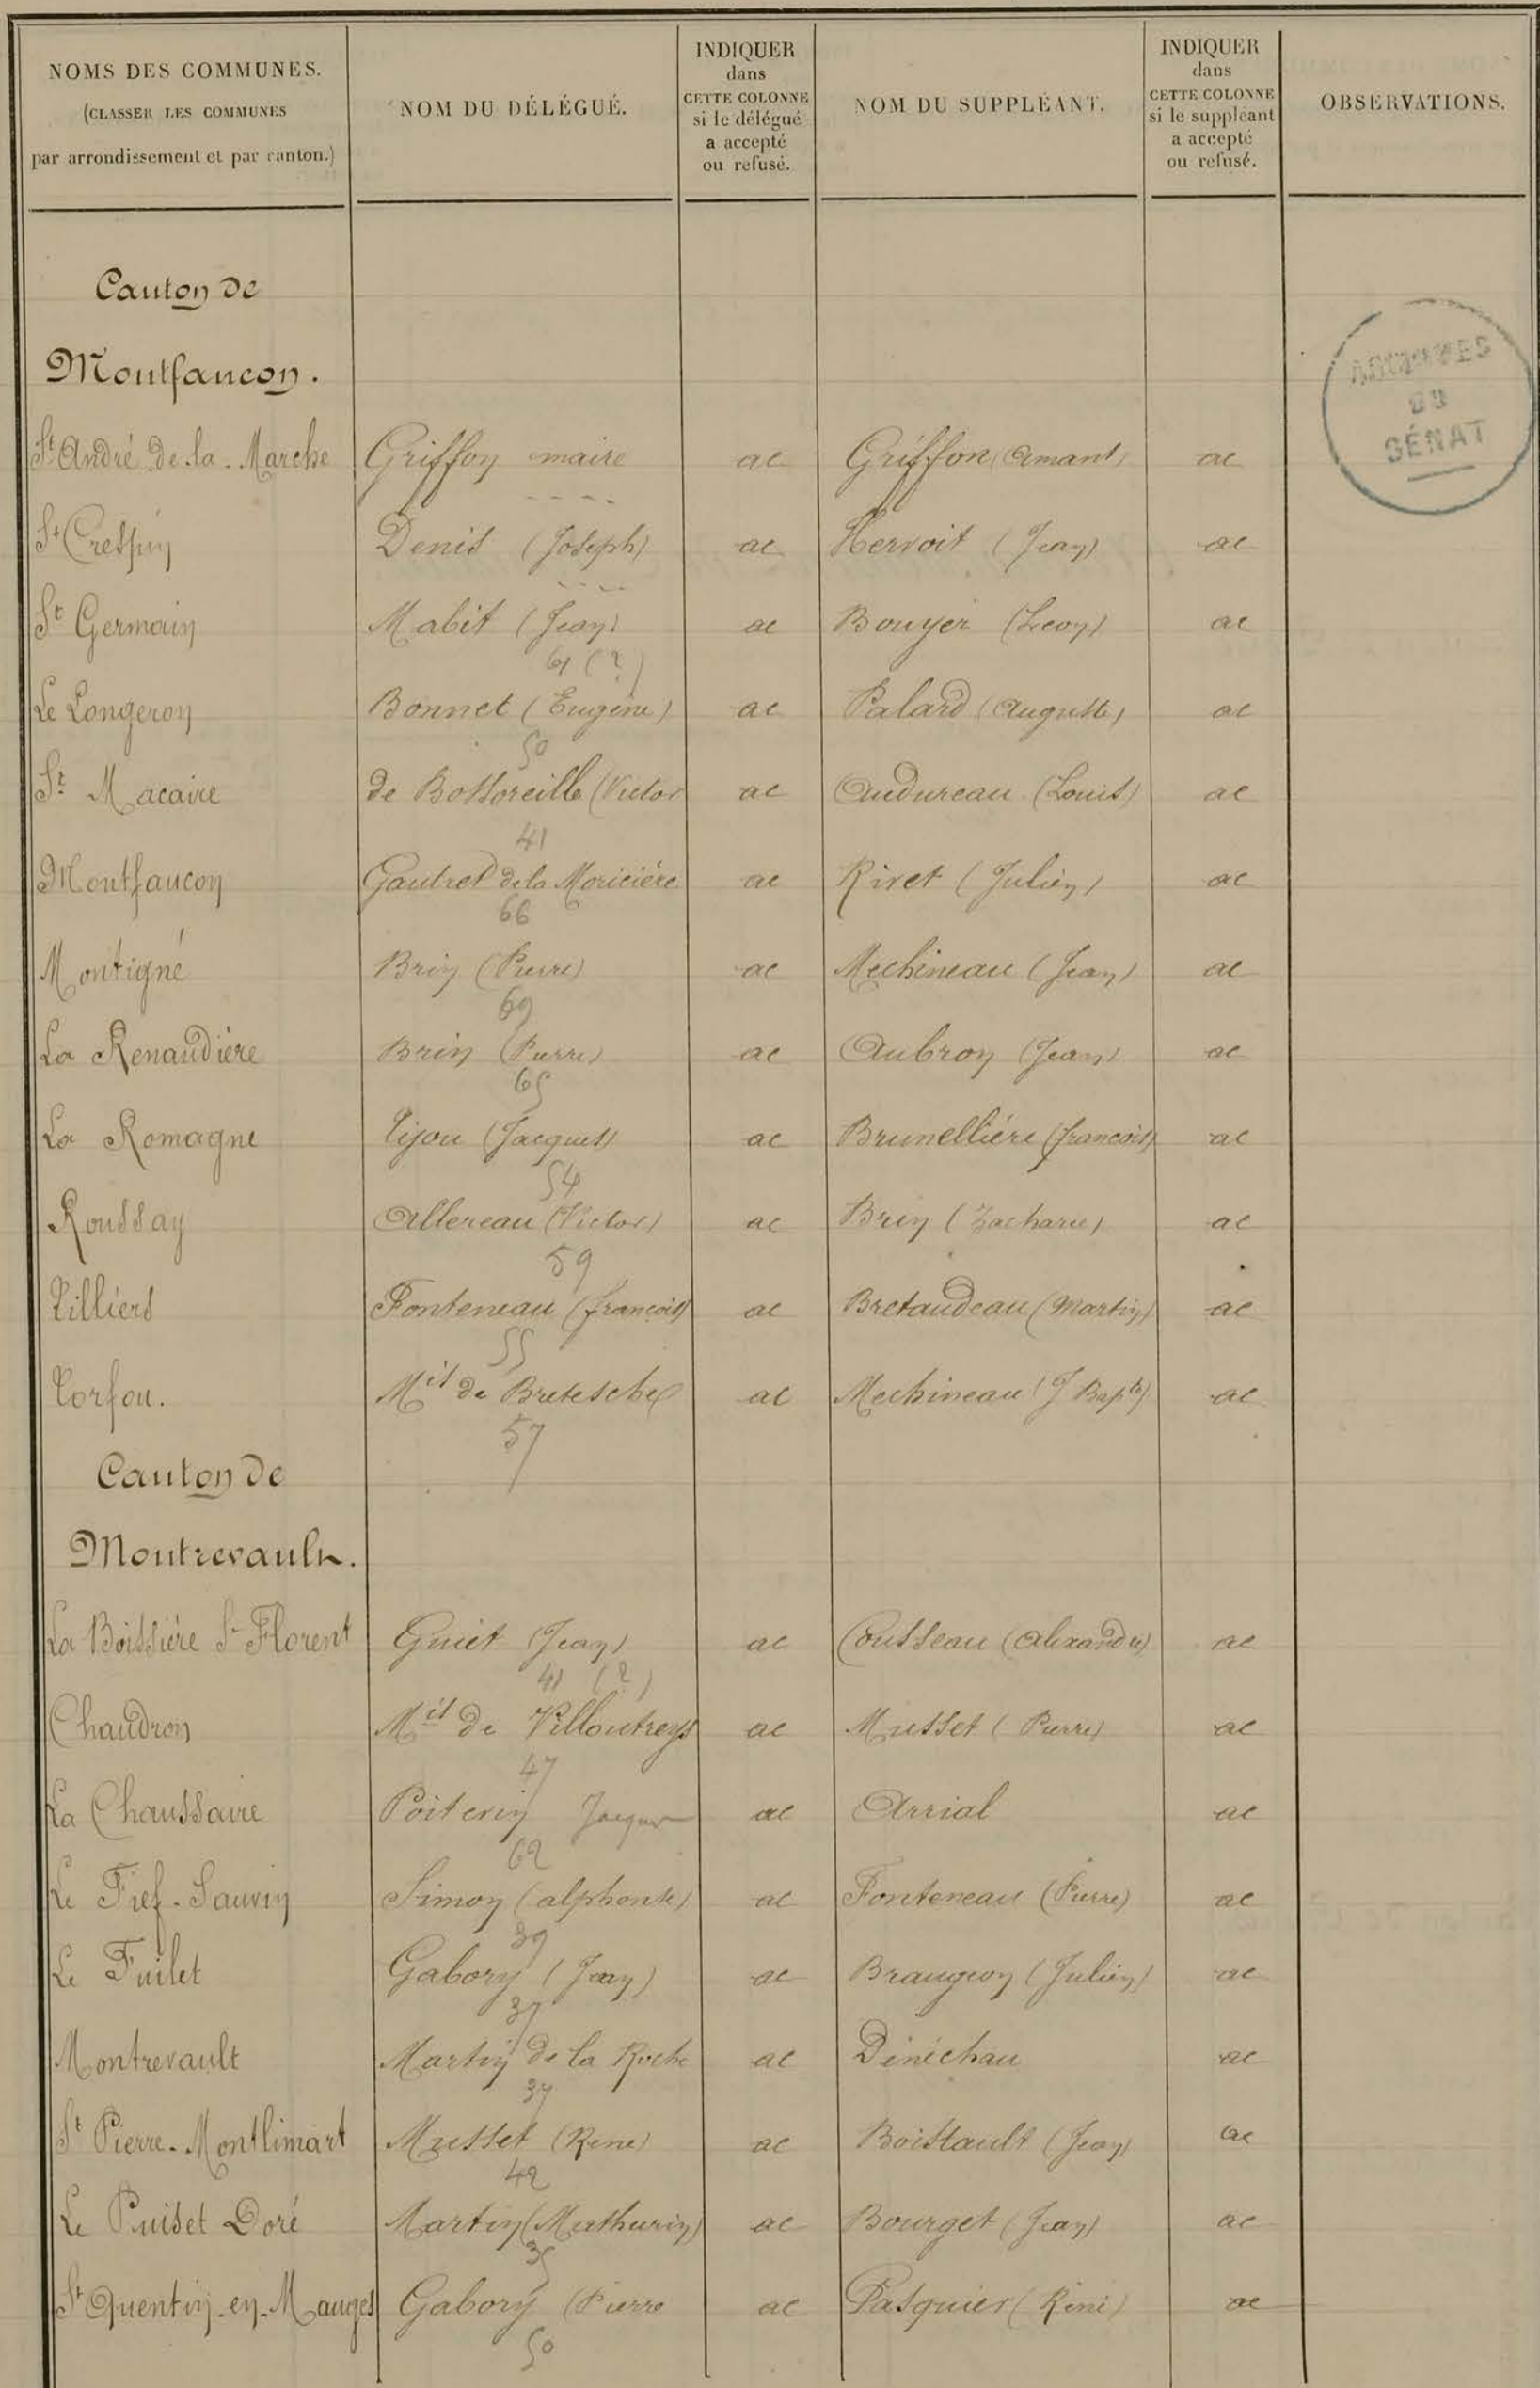 NOMS DES COMMUNES.
(CLASSER LES COMMUNES
par arrondissement et par canton.)
NOM DU DÉLÉGUÉ.
INDIQUER
dans
CETTE COLONNE
si le délégué
a accepté
ou refusé.
NOM DU SUPPLÉANT.
INDIQUER
dans
CETTE COLONNE
si le suppléant
a accepté
ou refusé.
OBSERVATIONS.
Canton de
Montfaucon.
ARCHIVES
DU
SÉNAT
St André de la Marche Griffon maire ac Griffon (Amant) ac
St Crespin Denis (Joseph) ac Hervoit (Jean) ac
St Germain Mabit (Jean) ac Bouyer (Léon) ac
61 (?)
Le Longeron Bonnet (Eugène) ac Palard (Auguste) ac
50
St Macaire de Bossoreille (Victor ac Audureau (Louis) ac
41
Montfaucon Gautret de la Moricière ac Rivet (Julien) ac
66
Montigné Brin (Pierre) ac Mechineau (Jean) ac
69
La Renaudière Brin (Pierre) ac Aubron (Jean) ac
65
La Romagne Tijou (Jacques) ac Brunellière (françois) ac
54
Roussay Allereau (Victor) ac Brin (Zacharie) ac
59
Tilliers Fonteneau (françois) ac Bretaudeau (Martin) ac
55
Torfou. Mis de Bretesche ac Mechineau (J Bapte) ac
57
Canton de
Montrevault.
La Boissière St Florent Guiet (Jean) ac Cousseau (Alexandre) ac
41 (?)
Chaudron Mis de Villoutreys ac Musset (Pierre) ac
47
La Chaussaire Poitevin Jacques ac Arrial ac
62
Le Fief-Sauvin Simon (alphonse) ac Fonteneau (Pierre) ac
39
Le Fuilet Gabory (Jean) ac Braugeon (Julien) ac
37
Montrevault Martin de la Roche ac Dénéchau ac
37
St Pierre-Montlimart Musset (René) ac Boistault (Jean) ac
42
Le Puiset Doré Martin (Mathurin) ac Bourget (Jean) ac
35
St Quentin-en-Mauges Gabory (Pierre ac Pasquier (René) ac
50